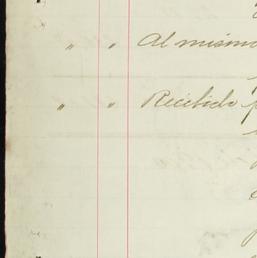 " " Al mismo
" " Recibido